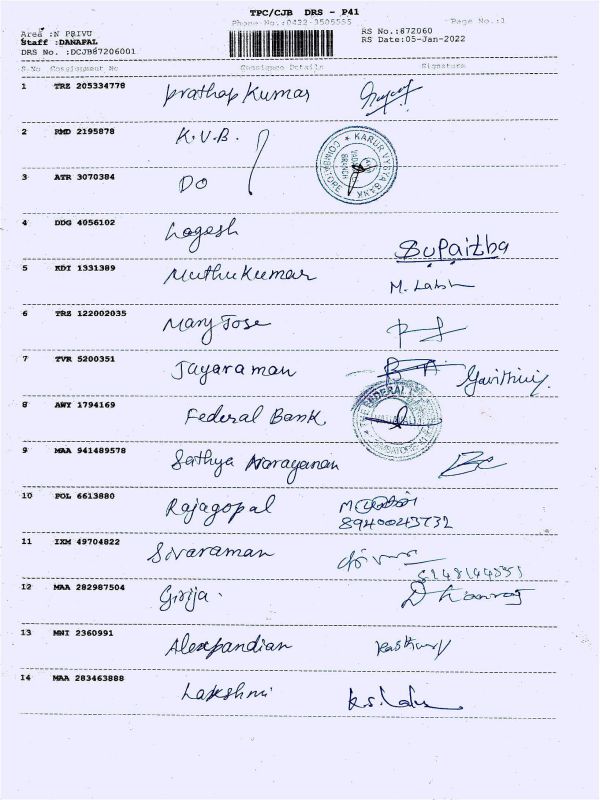 TPC/CJB DRS - P41
Phone No.:0422-3505555 Page No.:1
Area :N PRIVU RS No.:872060
Staff :DANAPAL RS Date:05-Jan-2022
DRS No. :DCJB87206001
S.No Consignment No Consignee Details Signature
1 TRZ 205334778 Prathap Kumar
2 RMD 2195878 K.V.B.
KARUR VYSYA BANK COIMBATORE BRANCH
3 ATR 3070384 DO
4 DDG 4056102 Logesh
5 KDI 1331389 Muthu Kumar M. Laksh
6 TRZ 122002035 Mary Jose
7 TVR 5200351 Jayaraman
8 AWY 1794169 Federal Bank
THE FEDERAL
9 MAA 941489578 Sathya Narayanan
10 POL 6613880 Rajagopal
8940043732
11 IXM 49704822 Sivaraman
12 MAA 282987504 Girija. Dhanraj
13 MNI 2360991 Alexpandian
14 MAA 283463888 Lakshmi